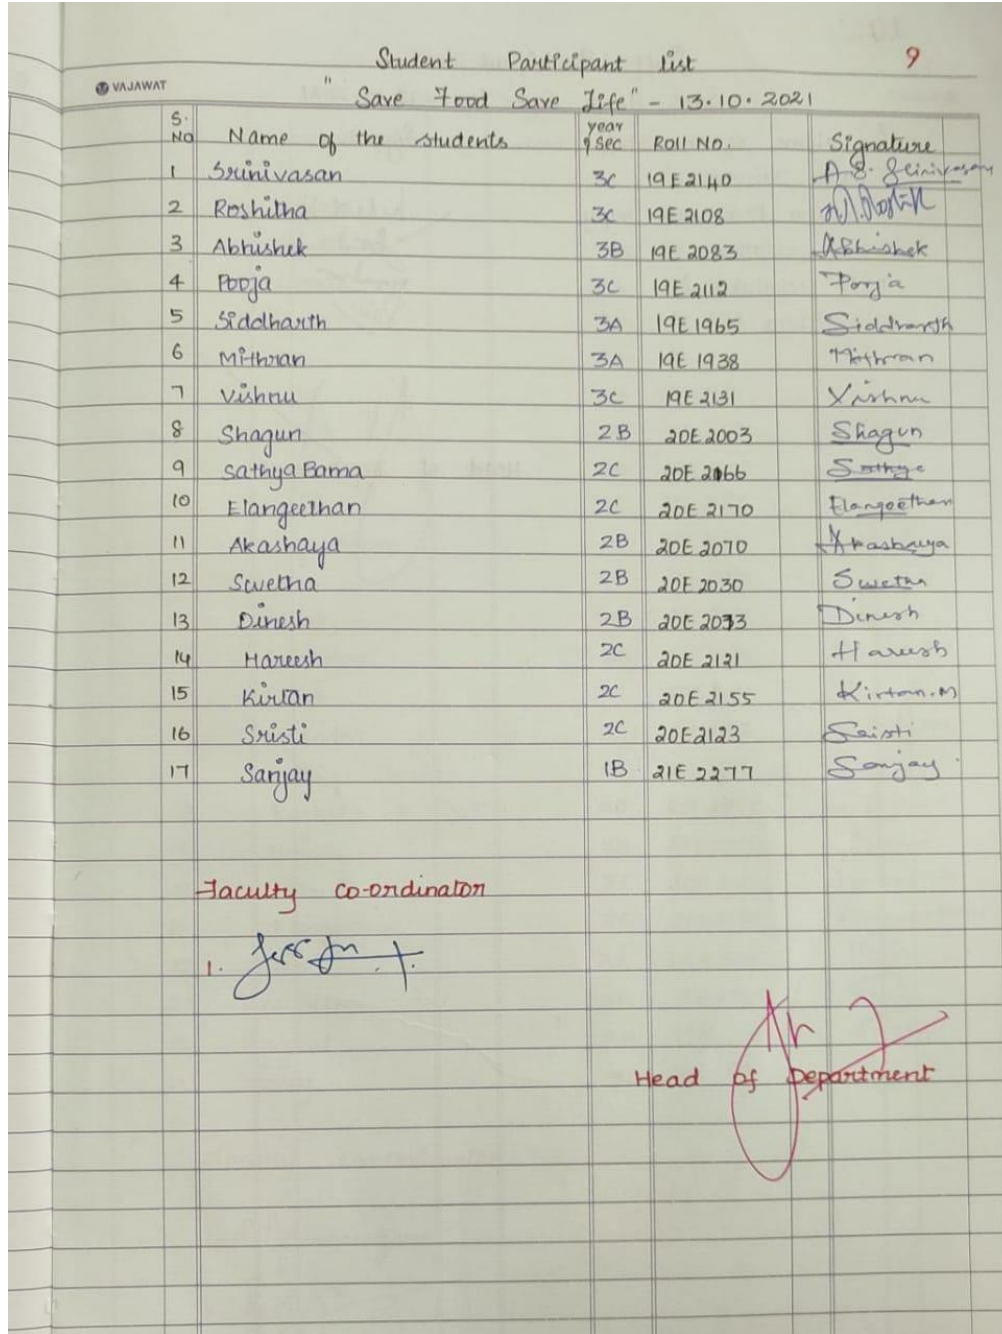 Student Participant list 9
VAJAWAT
"Save Food Save Life" - 13.10.2021
S.No Name of the students year & sec Roll No. Signature
1 Srinivasan 3C 19E2140 A. S. Srinivasan
2 Roshitha 3C 19E2108
3 Abhishek 3B 19E 2083 Abhishek
4 Pooja 3C 19E 2112 Pooja
5 Siddharth 3A 19E 1965 Siddharth
6 Mithran 3A 19E 1938 Mithran
7 Vishnu 3C 19E 2131 Vishnu
8 Shagun 2B 20E 2003 Shagun
9 Sathya Bama 2C 20E 2166 Sathya
10 Elangeethan 2C 20E 2170 Elangeethan
11 Akashaya 2B 20E 2070 Akashaya
12 Swetha 2B 20E 2030 Swetha
13 Dinesh 2B 20E 2073 Dinesh
14 Hareesh 2C 20E 2121 Hareesh
15 Kirtan 2C 20E 2155 Kirtan.M
16 Sristi 2C 20E2123 Sristi
17 Sanjay 1B 21E 2277 Sanjay
Faculty co-ordinator
1.
Head of Department